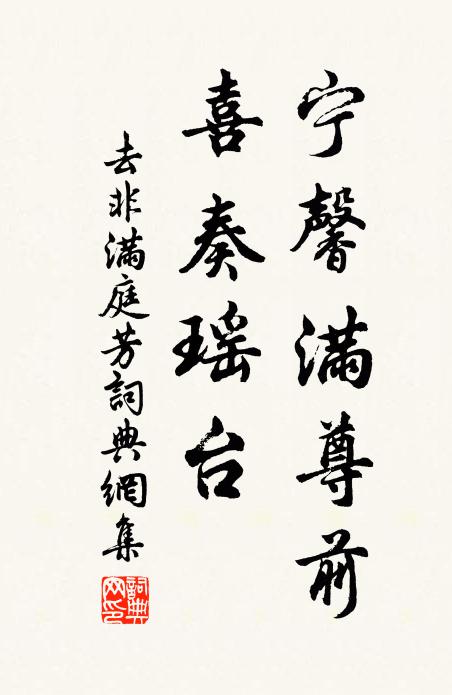 宁馨满尊前
喜奏瑶台
去非满庭芳詞典網集
詞典網印